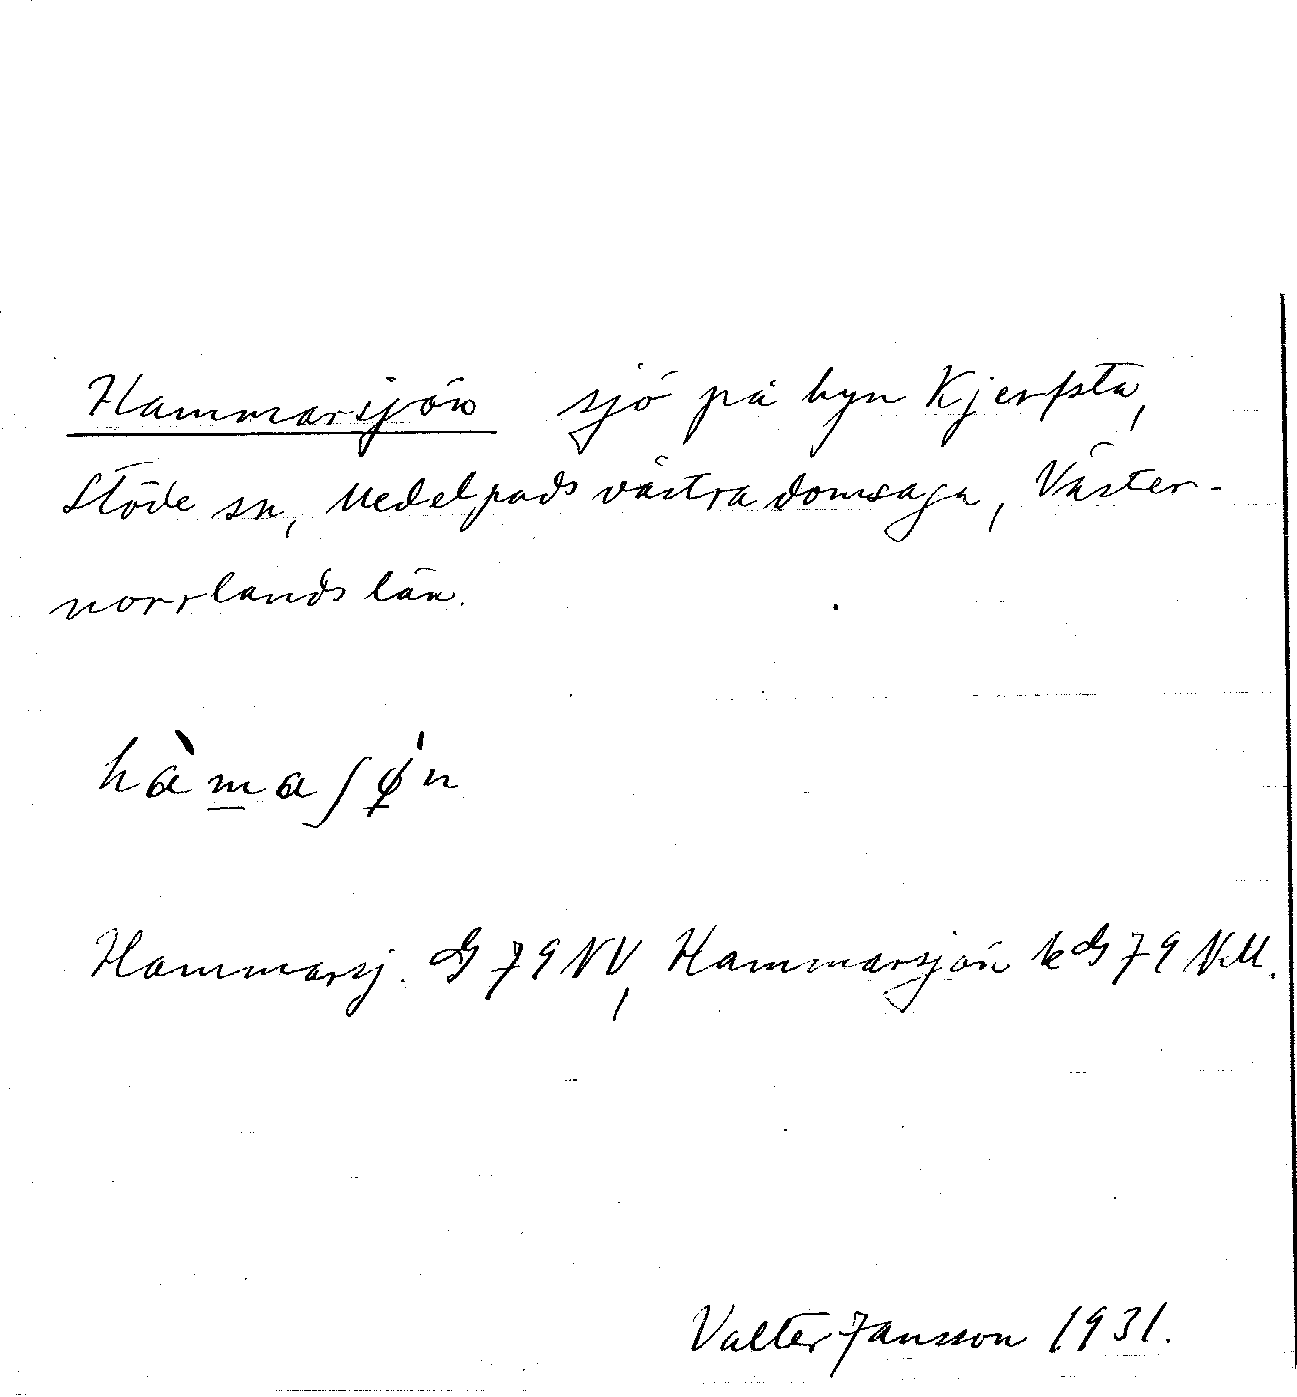 Hammarsjön sjö på byn Kjerfsta,
Stöde sn, Medelpads västra domsaga, Väster-
norrlands län.
hàmaʃǿn
Hammarsj. G 79 NV, Hammarsjön kG 79 NM.
Valter Jansson 1931.